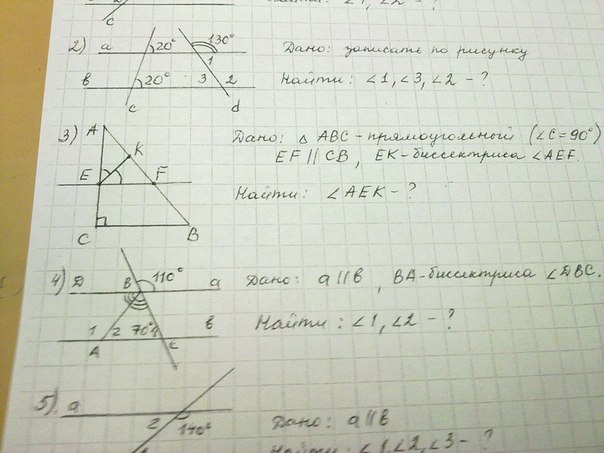 c
∠1, ∠2 - ?
2) a 20° 130° Дано: записать по рисунку
1
b 20° 3 2 Найти: ∠1, ∠3, ∠2 - ?
c d
3) A Дано: △ ABC - прямоугольный (∠C = 90°)
K EF || CB, EK - биссектриса ∠AEF.
E F Найти: ∠AEK - ?
C B
4) D B 110° a Дано: a || b, BA - биссектриса ∠DBC.
1 2 70° b Найти: ∠1, ∠2 - ?
A C
5) a Дано: a || b
2 140°
1 Найти: ∠1, ∠2, ∠3 - ?